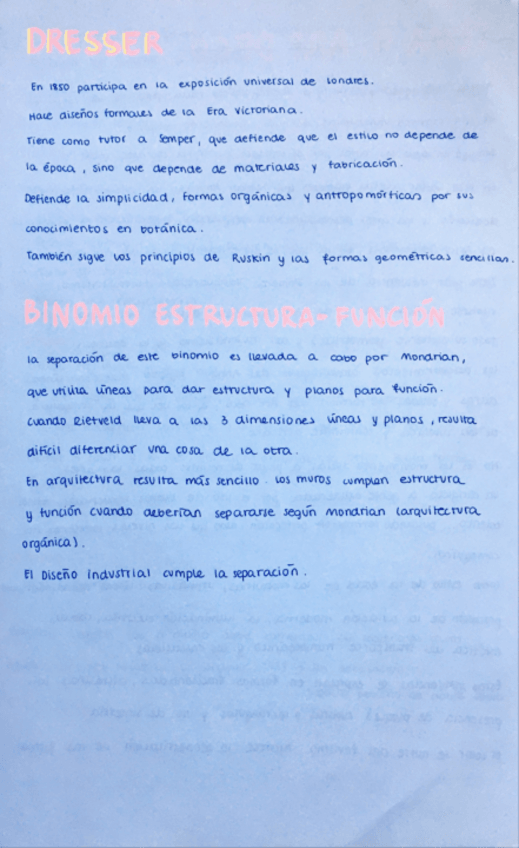 DRESSER
En 1850 participa en la exposición universal de Londres.
Hace diseños formales de la Era Victoriana.
Tiene como tutor a Semper, que defiende que el estilo no depende de
la época, sino que depende de materiales y fabricación.
Defiende la simplicidad, formas orgánicas y antropomórficas por sus
conocimientos en botánica.
También sigue los principios de Ruskin y las formas geométricas sencillas.
BINOMIO ESTRUCTURA-FUNCIÓN
La separación de este binomio es llevada a cabo por Mondrian,
que utiliza líneas para dar estructura y planos para función.
Cuando Rietveld lleva a las 3 dimensiones líneas y planos, resulta
difícil diferenciar una cosa de la otra.
En arquitectura resulta más sencillo. Los muros cumplen estructura
y función cuando deberían separarse según Mondrian (arquitectura
orgánica).
El Diseño industrial cumple la separación.